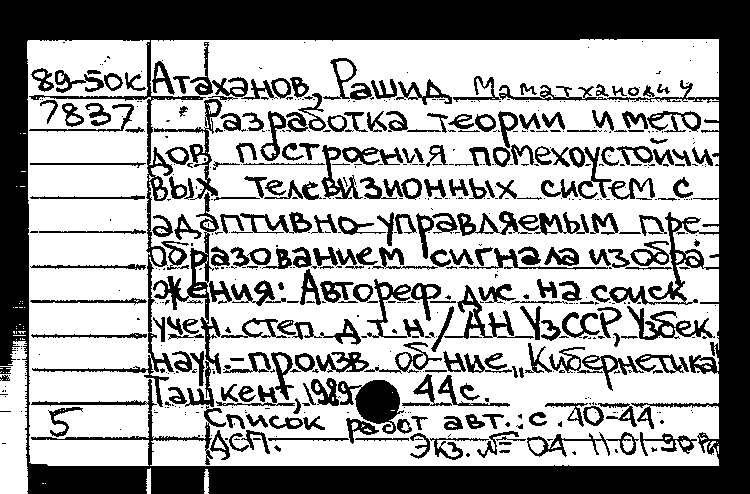 89-50К Атаханов, Рашид Маматханович
7837 Разработка теории и мето-
дов построения помехоустойчи-
вых телевизионных систем с
адаптивно-управляемым пре-
образованием сигнала изобра-
жения: Автореф. дис. на соиск.
учен. степ. д.т.н. / АН УзССР, Узбек.
науч.-произв. об-ние „Кибернетика"
Ташкент, 1989 44с.
5 Список работ авт.: с. 40-44.
ДСП. Экз. № 04. 11.01.90